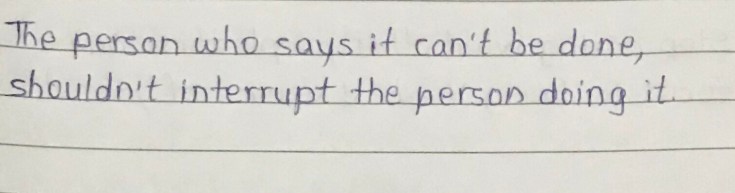 The person who says it can't be done,
shouldn't interrupt the person doing it.